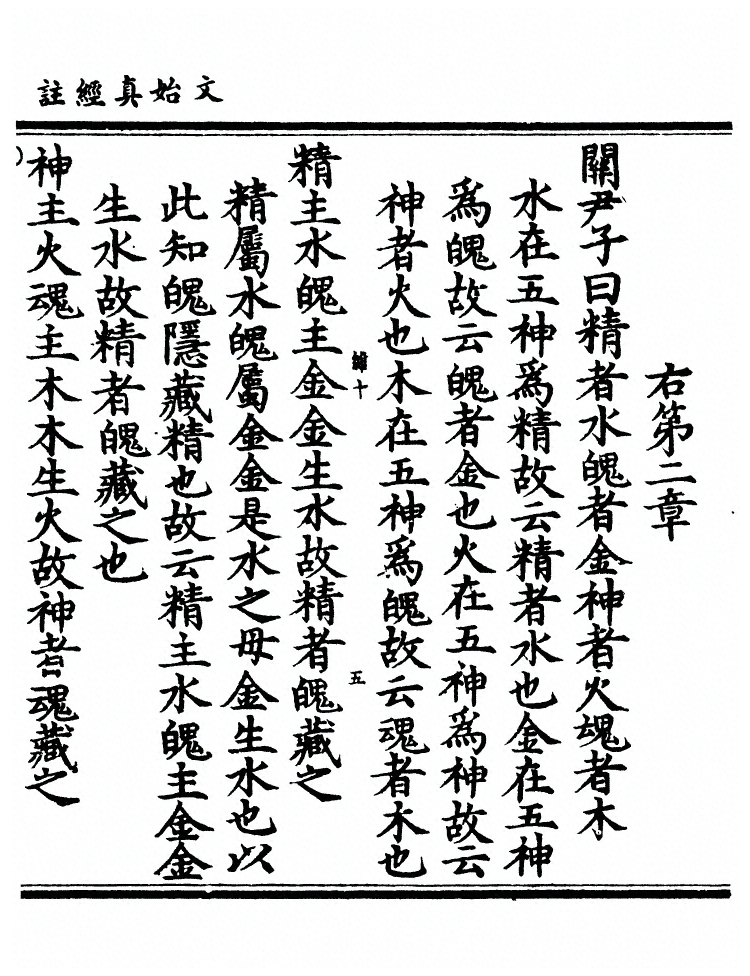 文始真經註
右第二章
關尹子曰精者水魄者金神者火魂者木
水在五神爲精故云精者水也金在五神
爲魄故云魄者金也火在五神爲神故云
神者火也木在五神爲魄故云魂者木也
十 五
精主水魄主金金生水故精者魄藏之
精屬水魄屬金金是水之母金生水也以
此知魄隱藏精也故云精主水魄主金金
生水故精者魄藏之也
神主火魂主木木生火故神者魂藏之